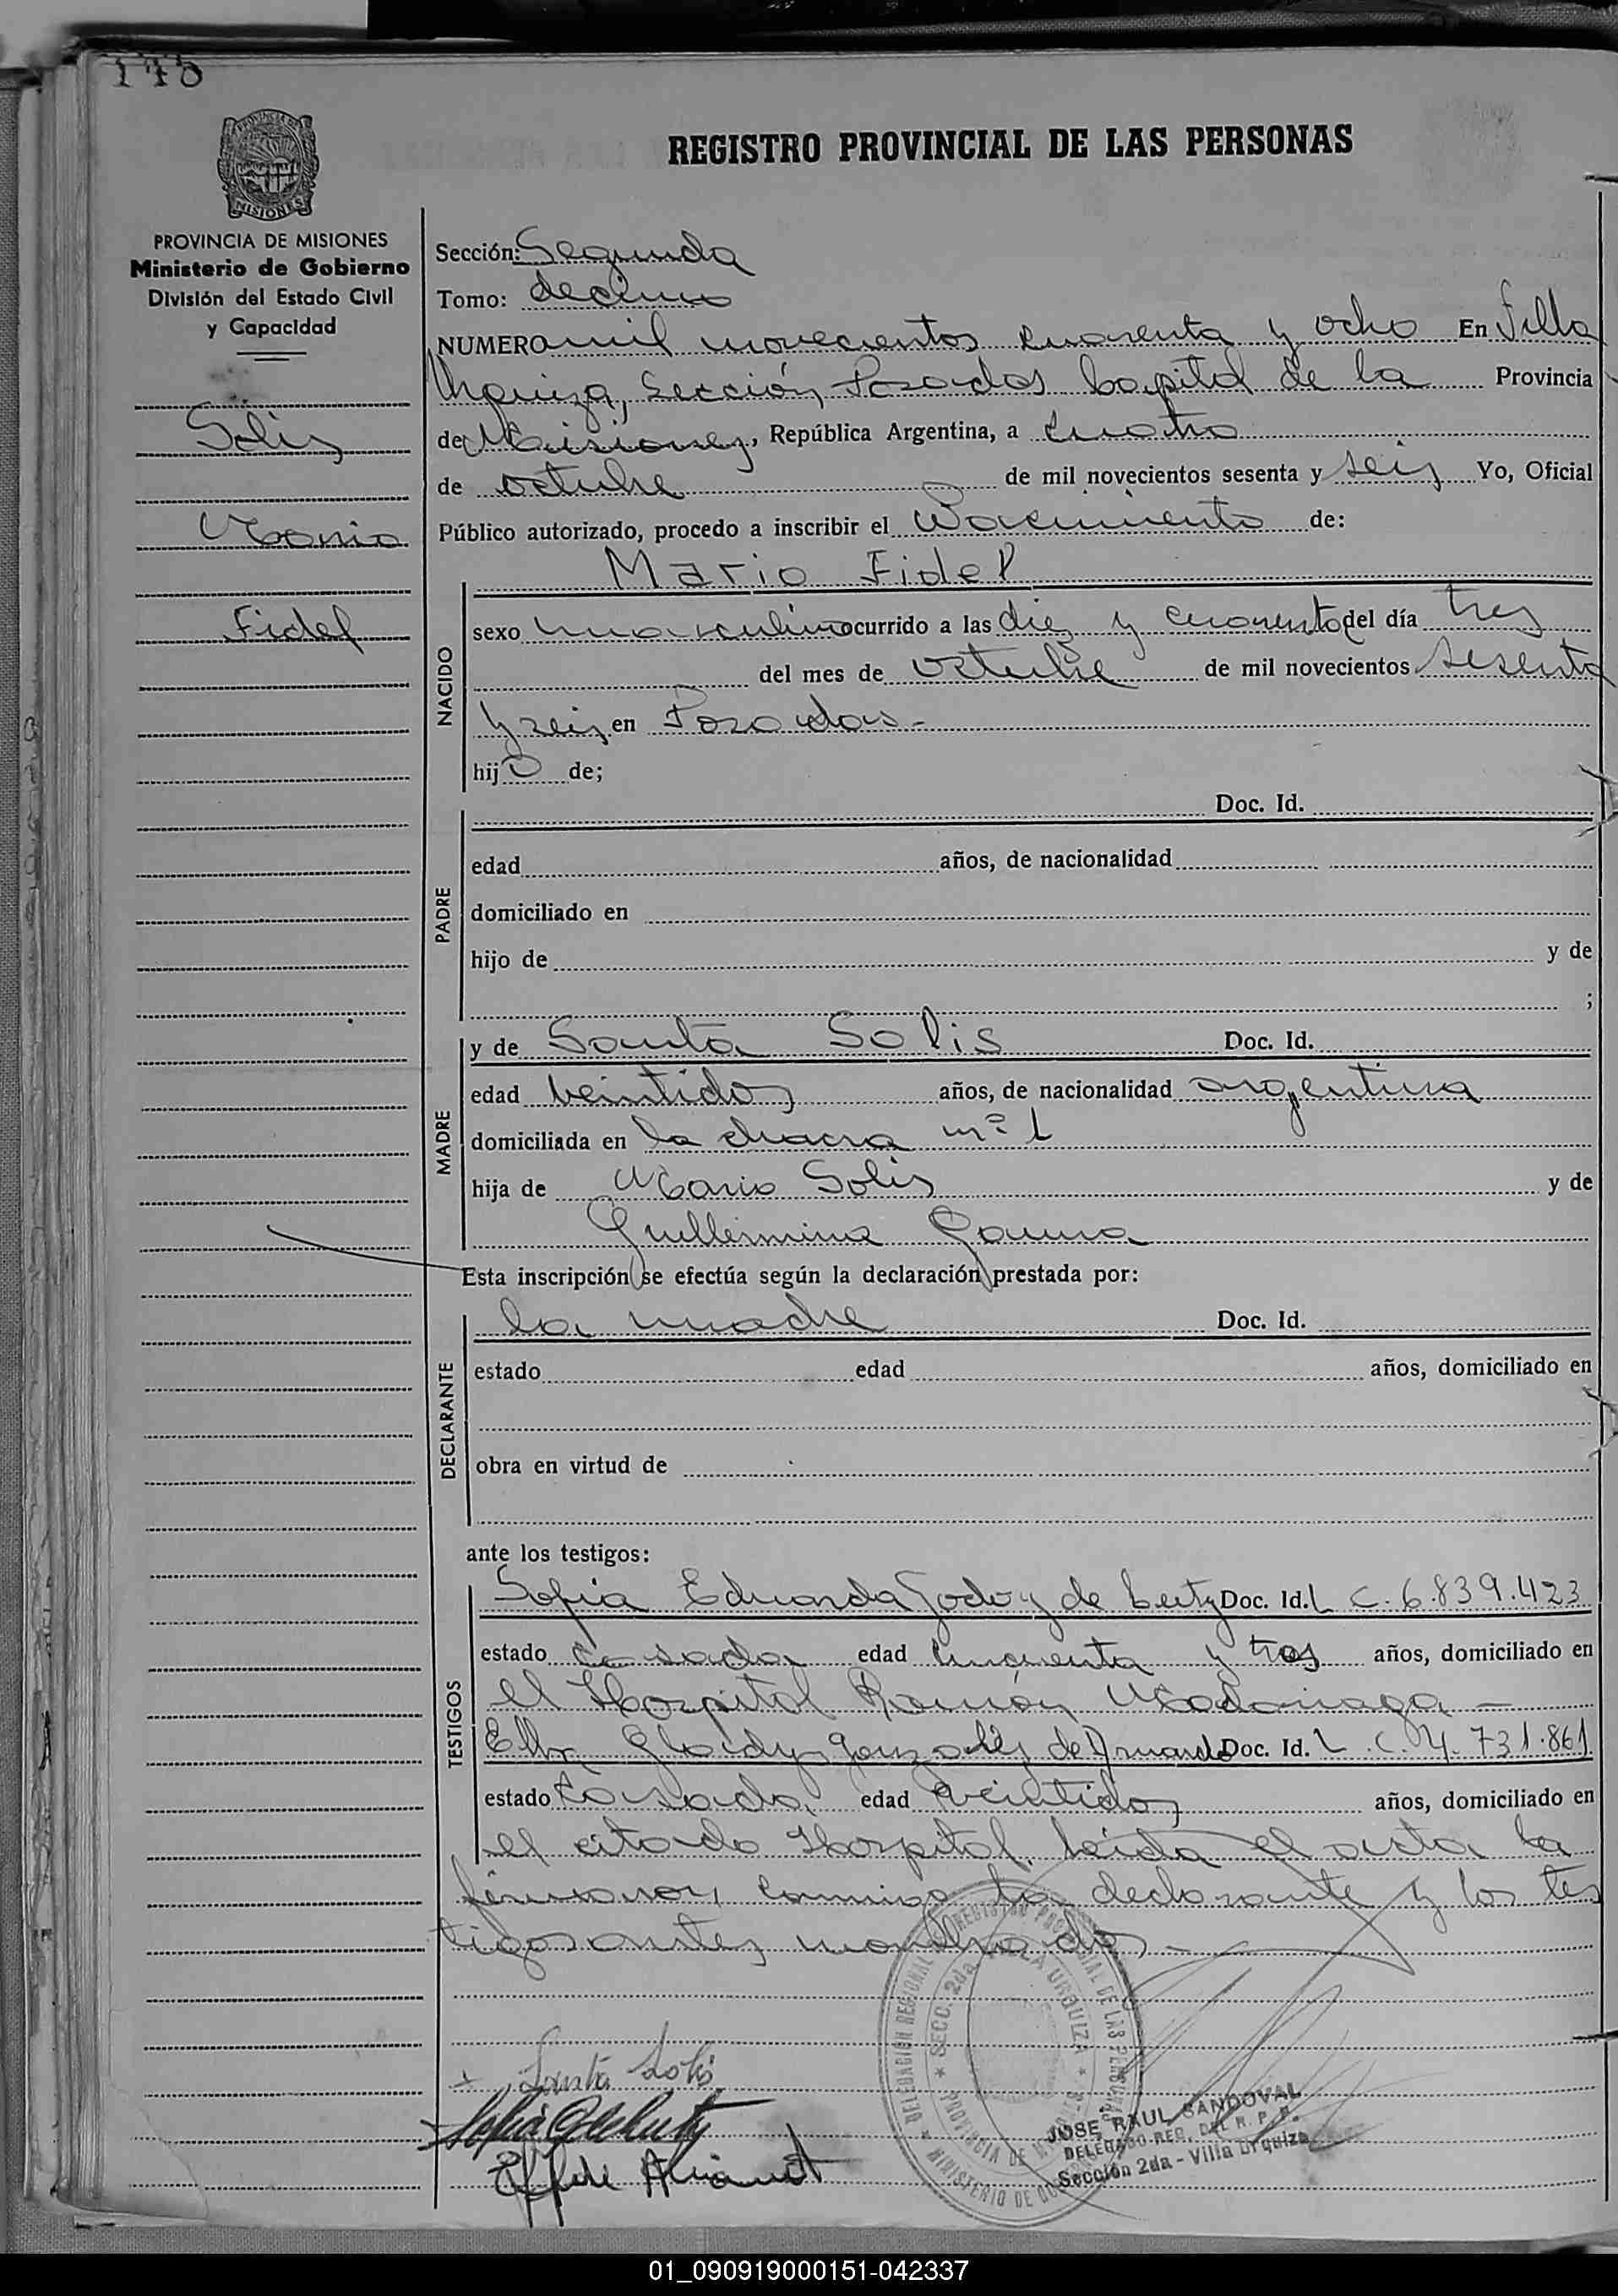 REGISTRO PROVINCIAL DE LAS PERSONAS
PROVINCIA DE MISIONES
Ministerio de Gobierno
División del Estado Civil
y Capacidad
Solis
Mario
Fidel
Sección: Segunda
Tomo: decimo
NUMERO mil novecientos cuarenta y ocho En Villa
Urquiza, Sección Posadas Capital de la Provincia
de Misiones, República Argentina, a cuatro
de octubre de mil novecientos sesenta y seis Yo, Oficial
Público autorizado, procedo a inscribir el Nacimiento de:
Mario Fidel
NACIDO
sexo masculino ocurrido a las diez y cuarenta del día tres
del mes de octubre de mil novecientos sesenta
y seis en Posadas-
hijo de;
PADRE
Doc. Id.
edad años, de nacionalidad
domiciliado en
hijo de y de
;
MADRE
y de Santa Solis Doc. Id.
edad veintidos años, de nacionalidad argentina
domiciliada en la chacra nº 1
hija de Mario Solis y de
Guillermina Gauna
Esta inscripción se efectúa según la declaración prestada por:
DECLARANTE
la madre Doc. Id.
estado edad años, domiciliado en
obra en virtud de
ante los testigos:
TESTIGOS
Sofia Eduarda Godoy de Doc. Id. L C. 6.839.423
estado casada edad y tres años, domiciliado en
el Hospital Ramón Madariaga -
Gladys Gonzalez de Doc. Id. L. C. 4.731.861
estado casada edad veintidos años, domiciliado en
el citado Hospital. Leida el acta la
firmaron conmigo la declarante y los tes
tigos antes nombrados-
Santa Solis
REGISTRO PROVINCIAL DE LAS PERSONAS
DELEGACIÓN REGIONAL
SECC. 2da VILLA URQUIZA
PROVINCIA DE MISIONES
MINISTERIO DE GOBIERNO
JOSE RAUL SANDOVAL
DELEGADO REG. DEL R. P. P.
Sección 2da - Villa Urquiza
01_090919000151-042337